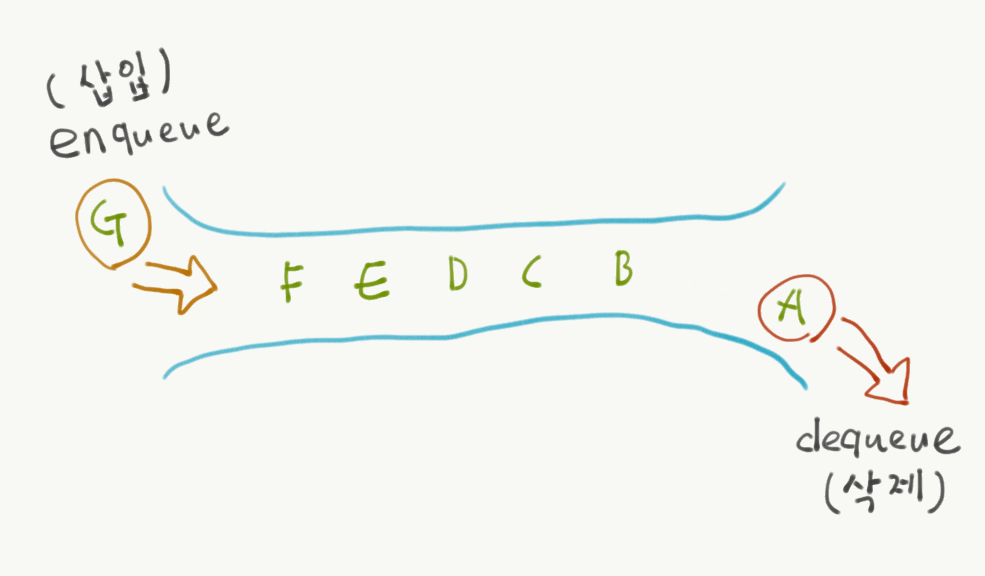 (삽입)
enqueue
G
F E D C B
A
dequeue
(삭제)